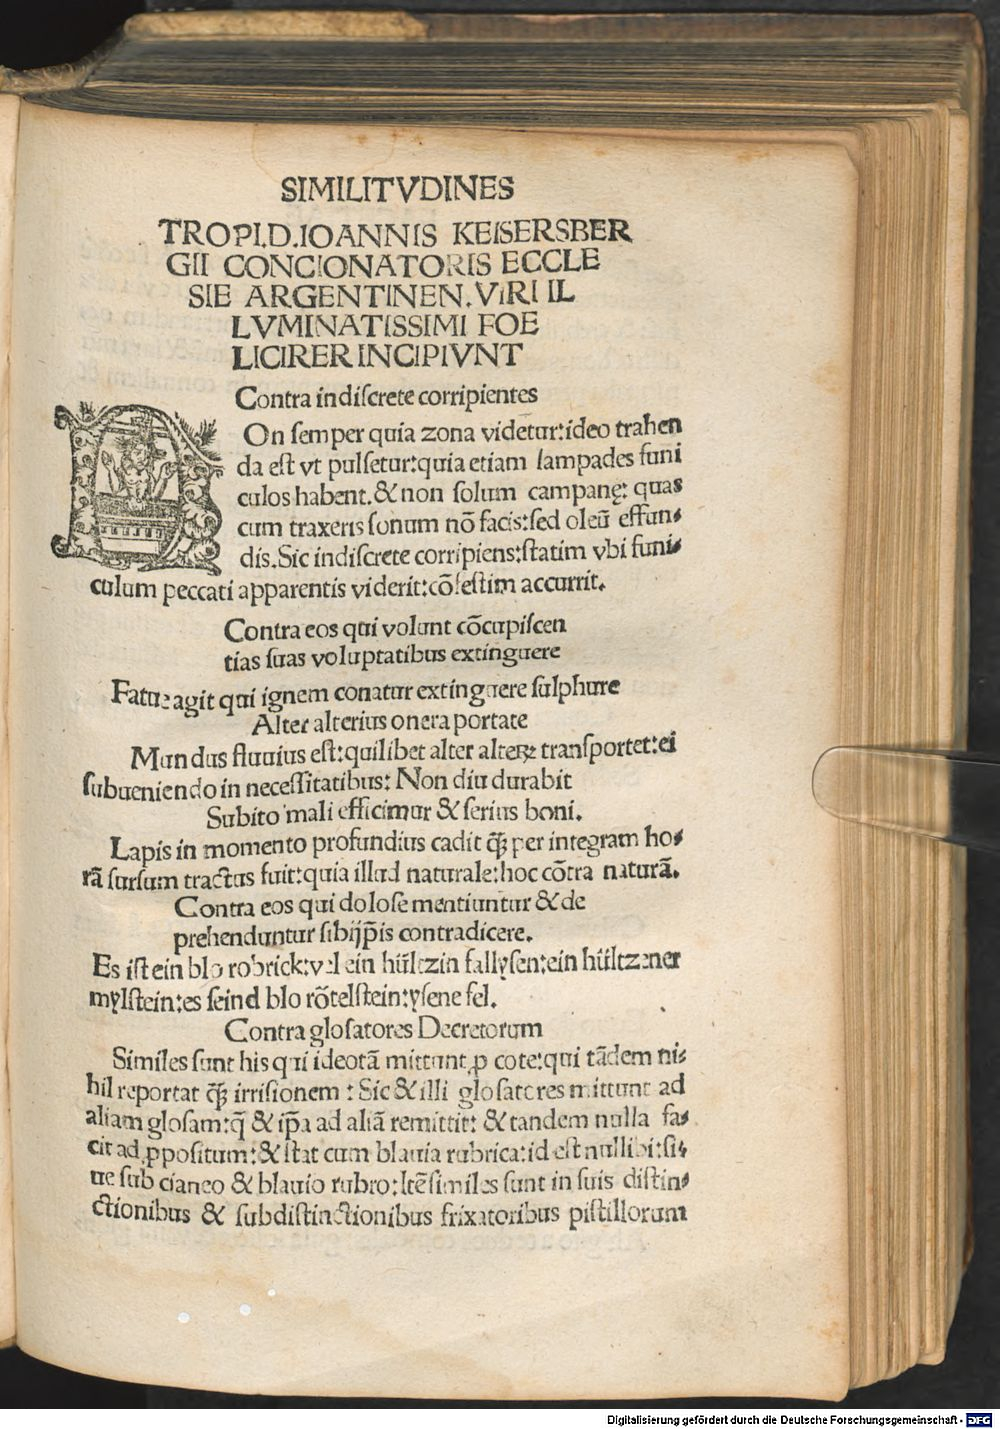 SIMILITVDINES
TROPI.D.IOANNIS KEISERSBER
GII CONCIONATORIS ECCLE
SIE ARGENTINEN. VIRI IL
LVMINATISSIMI FOE
LICIRER INCIPIVNT
Contra indiſcrete corripientes
NOn ſemper quia zona videtur:ideo trahen
da eſt vt pulſetur:quia etiam lampades funi
culos habent.& non ſolum campanę: quas
cum traxeris ſonum nõ facis:ſed oleũ effun⸗
dis.Sic indiſcrete corripiens:ſtatim vbi funi⸗
culum peccati apparentis viderit:cõfeſtim accurrit.
Contra eos qui volunt cõcupiſcen
tias ſuas voluptatibus extinguere
Fatue agit qui ignem conatur extinguere ſulphure
Alter alterius onera portate
Mundus fluuius eſt:quilibet alter alteꝝ tranſportet:ei
ſubueniendo in neceſſitatibus: Non diu durabit
Subito mali efficimur & ſerius boni.
Lapis in momento profundius cadit q̃ꝫ per integram ho⸗
rã ſurſum tractus fuit:quia illud naturale:hoc cõtra naturã.
Contra eos qui doloſe mentiuntur & de
prehenduntur ſibijp̃is contradicere.
Es iſt ein blo robrick:vel ein hültzin fallyſen:ein hültzener
mylſtein:es ſeind blo rõtelſtein:yſene fel.
Contra gloſatores Decretorum
Similes ſunt his qui ideotã mittunt ꝓ cote:qui tãdem ni⸗
hil reportat q̃ꝫ irriſionem : Sic & illi gloſatores mittunt ad
aliam gloſam:q̃ & ip̃a ad aliã remittit: & tandem nulla fa⸗
cit ad ꝓpoſitum:& ſtat cum blauia rubrica:id eſt nullibi:ſi⸗
ue ſub cianeo & blauio rubro:Itẽ ſimiles ſunt in ſuis diſtin⸗
ctionibus & ſubdiſtinctionibus frixatoribus piſtillorum
Digitalisierung gefördert durch die Deutsche Forschungsgemeinschaft - DFG